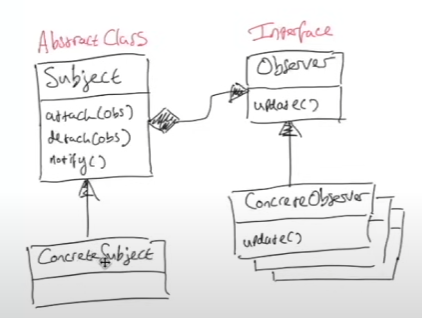 Abstract Class
Subject
attach(obs)
detach(obs)
notify()
ConcreteSubject
Interface
Observer
update()
ConcreteObserver
update()